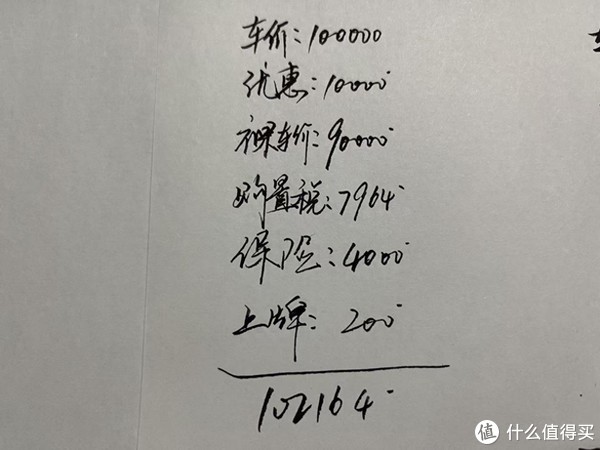 车价:100000
优惠:10000
裸车价:90000
购置税:7964
保险:4000
上牌:200
102164
值 什么值得买